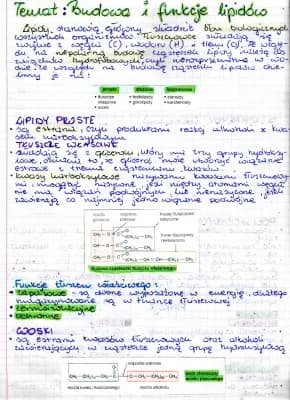 Temat: Budowa i funkcje lipidów
Lipidy, stanowią główny składnik błon biologicznych
wszystkich organizmów. Tłuszczowce składają się
z węgla (C), wodoru (H) i tlenu (O). Ze wzglę-
du na niepolarną budowę cząsteczki lipidy należą do
związków hydrofobowych, czyli nierozpuszczalne w wo-
dzie. Ze względu na budowę cząsteczki lipidów dzie-
limy je na:
proste
złożone
izoprenowe
• tłuszcze
• woski
• fosfolipidy
• glikolipidy
• steroidy
• karotenoidy
LIPIDY PROSTE
są estrami, czyli produktami reakcji alkoholu z kwa-
sem
TŁUSZCZE WŁAŚCIWE
• składają się z glicerolu, który ma trzy grupy hydroksy-
lowe, oznacza to, że glicerol może utworzyć wiązanie
estrowe z trzema cząsteczkami kwasów.
• kwasy
nazywamy kwasami tłuszczowy-
mi i mogą być nasycone jeśli między atomami węgla
nie ma wiązań podwójnych lub nienasycone jeśli
zawierają co najmniej jedno wiązanie podwójne.
reszta glicerolu
wiązania estrowe
Funkcje tłuszczów właściwych:
• zapasowe - są dobrze wyposażone w energię, dlatego
magazynowane są w tkance tłuszczowej
• termoizolacyjne
• ochronne
WOSKI
→ są estrami kwasów tłuszczowych oraz alkoholi
zawierających w cząsteczce jedną grupę hydroksylową
wiązanie estrowe
reszta kwasu tłuszczowego
reszta alkoholu